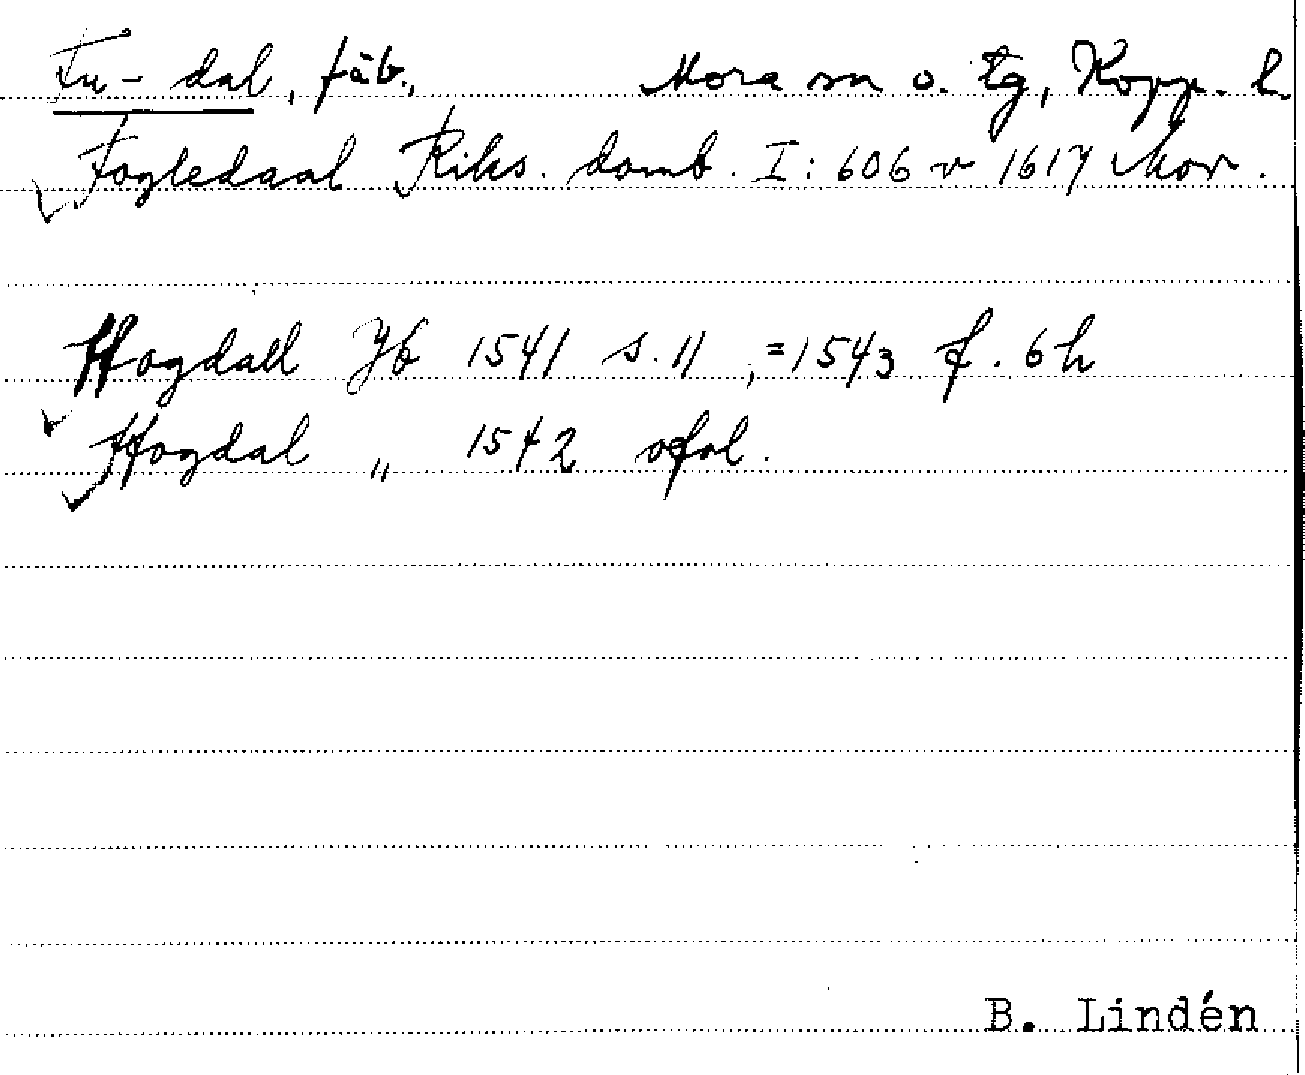 Fu-dal, fäb., Mora sn o. tg, Kopp. l.
Fogledaal Riks. domb. I: 606 v 1617 Mor.
Hogdall Jb 1541 s. 11, =1543 f. 6 h
Hogdal „ 1542 ofol.
B. Lindén